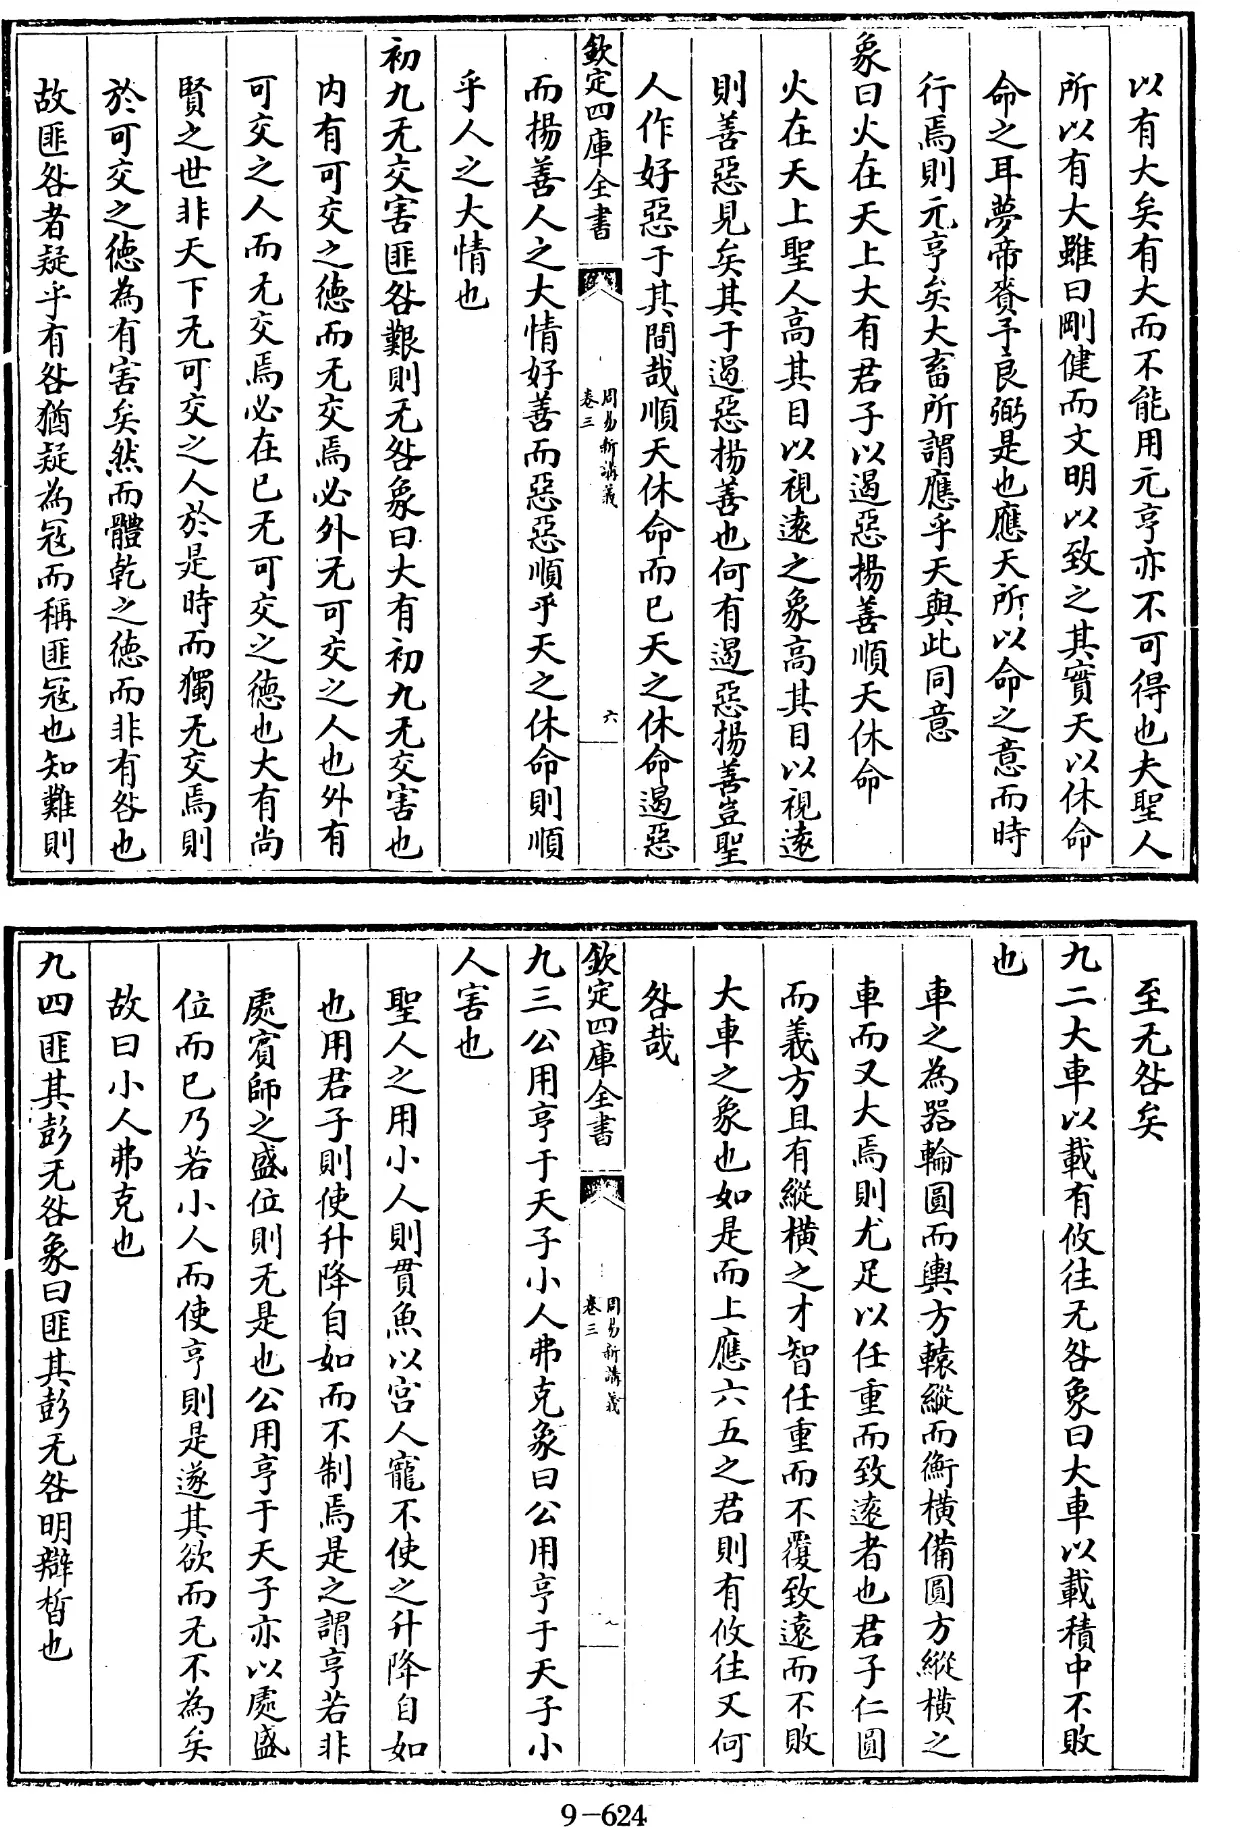 以有大矣有大而不能用元亨亦不可得也夫聖人
所以有大雖曰剛健而文明以致之其實天以休命
命之耳夢帝賚予良弼是也應天所以命之意而時
行焉則元亨矣大畜所謂應乎天與此同意
象曰火在天上大有君子以遏惡揚善順天休命
火在天上聖人高其目以視遠之象高其目以視遠
則善惡見矣其于遏惡揚善也何有遏惡揚善豈聖
人作好惡于其間哉順天休命而已天之休命遏惡
欽定四庫全書
周易新講義
卷三
六
而揚善人之大情好善而惡惡順乎天之休命則順
乎人之大情也
初九无交害匪咎艱則无咎象曰大有初九无交害也
内有可交之德而无交焉必外无可交之人也外有
可交之人而无交焉必在已无可交之德也大有尚
賢之世非天下无可交之人於是時而獨无交焉則
於可交之德為有害矣然而體乾之德而非有咎也
故匪咎者疑乎有咎猶疑為寇而稱匪寇也知難則
至无咎矣
九二大車以載有攸往无咎象曰大車以載積中不敗
也
車之為器輪圓而輿方轅縱而衡橫備圓方縱橫之
車而又大焉則尤足以任重而致遠者也君子仁圓
而義方且有縱橫之才智任重而不覆致遠而不敗
大車之象也如是而上應六五之君則有攸往又何
咎哉
欽定四庫全書
周易新講義
卷三
九三公用亨于天子小人弗克象曰公用亨于天子小
人害也
聖人之用小人則貫魚以宮人寵不使之升降自如
也用君子則使升降自如而不制焉是之謂亨若非
處賓師之盛位則无是也公用亨于天子亦以處盛
位而已乃若小人而使亨則是遂其欲而无不為矣
故曰小人弗克也
九四匪其彭无咎象曰匪其彭无咎明辯晢也
9-624